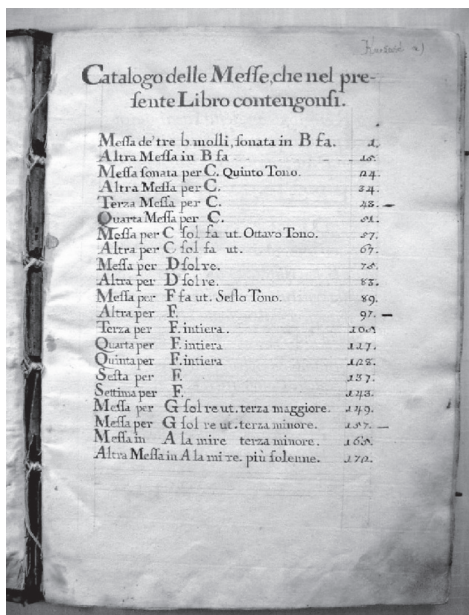 Catalogo delle Meſſe, che nel pre-
ſente Libro contengonſi.
Meſſa de' tre b molli, ſonata in B fa. 1.
Altra Meſſa in B fa 15.
Meſſa ſonata per C. Quinto Tono. 24.
Altra Meſſa per C. 34.
Terza Meſſa per C. 43. –
Quarta Meſſa per C. 51.
Meſſa per C ſol fa ut. Ottavo Tono. 57.
Altra per C ſol fa ut. 67.
Meſſa per D ſol re. 75.
Altra per D ſol re. 83.
Meſſa per F fa ut. Seſto Tono. 89.
Altra per F. 97. –
Terza per F. intiera.
Quarta per F. intiera 117.
Quinta per F. intiera 128.
Seſta per F. 137.
Settima per F. 143.
Meſſa per G ſol re ut. terza maggiore. 149.
Meſſa per G ſol re ut. terza minore. 157. –
Meſſa in A la mi re terza minore. 165.
Altra Meſſa in A la mi re. più ſolenne. 172.